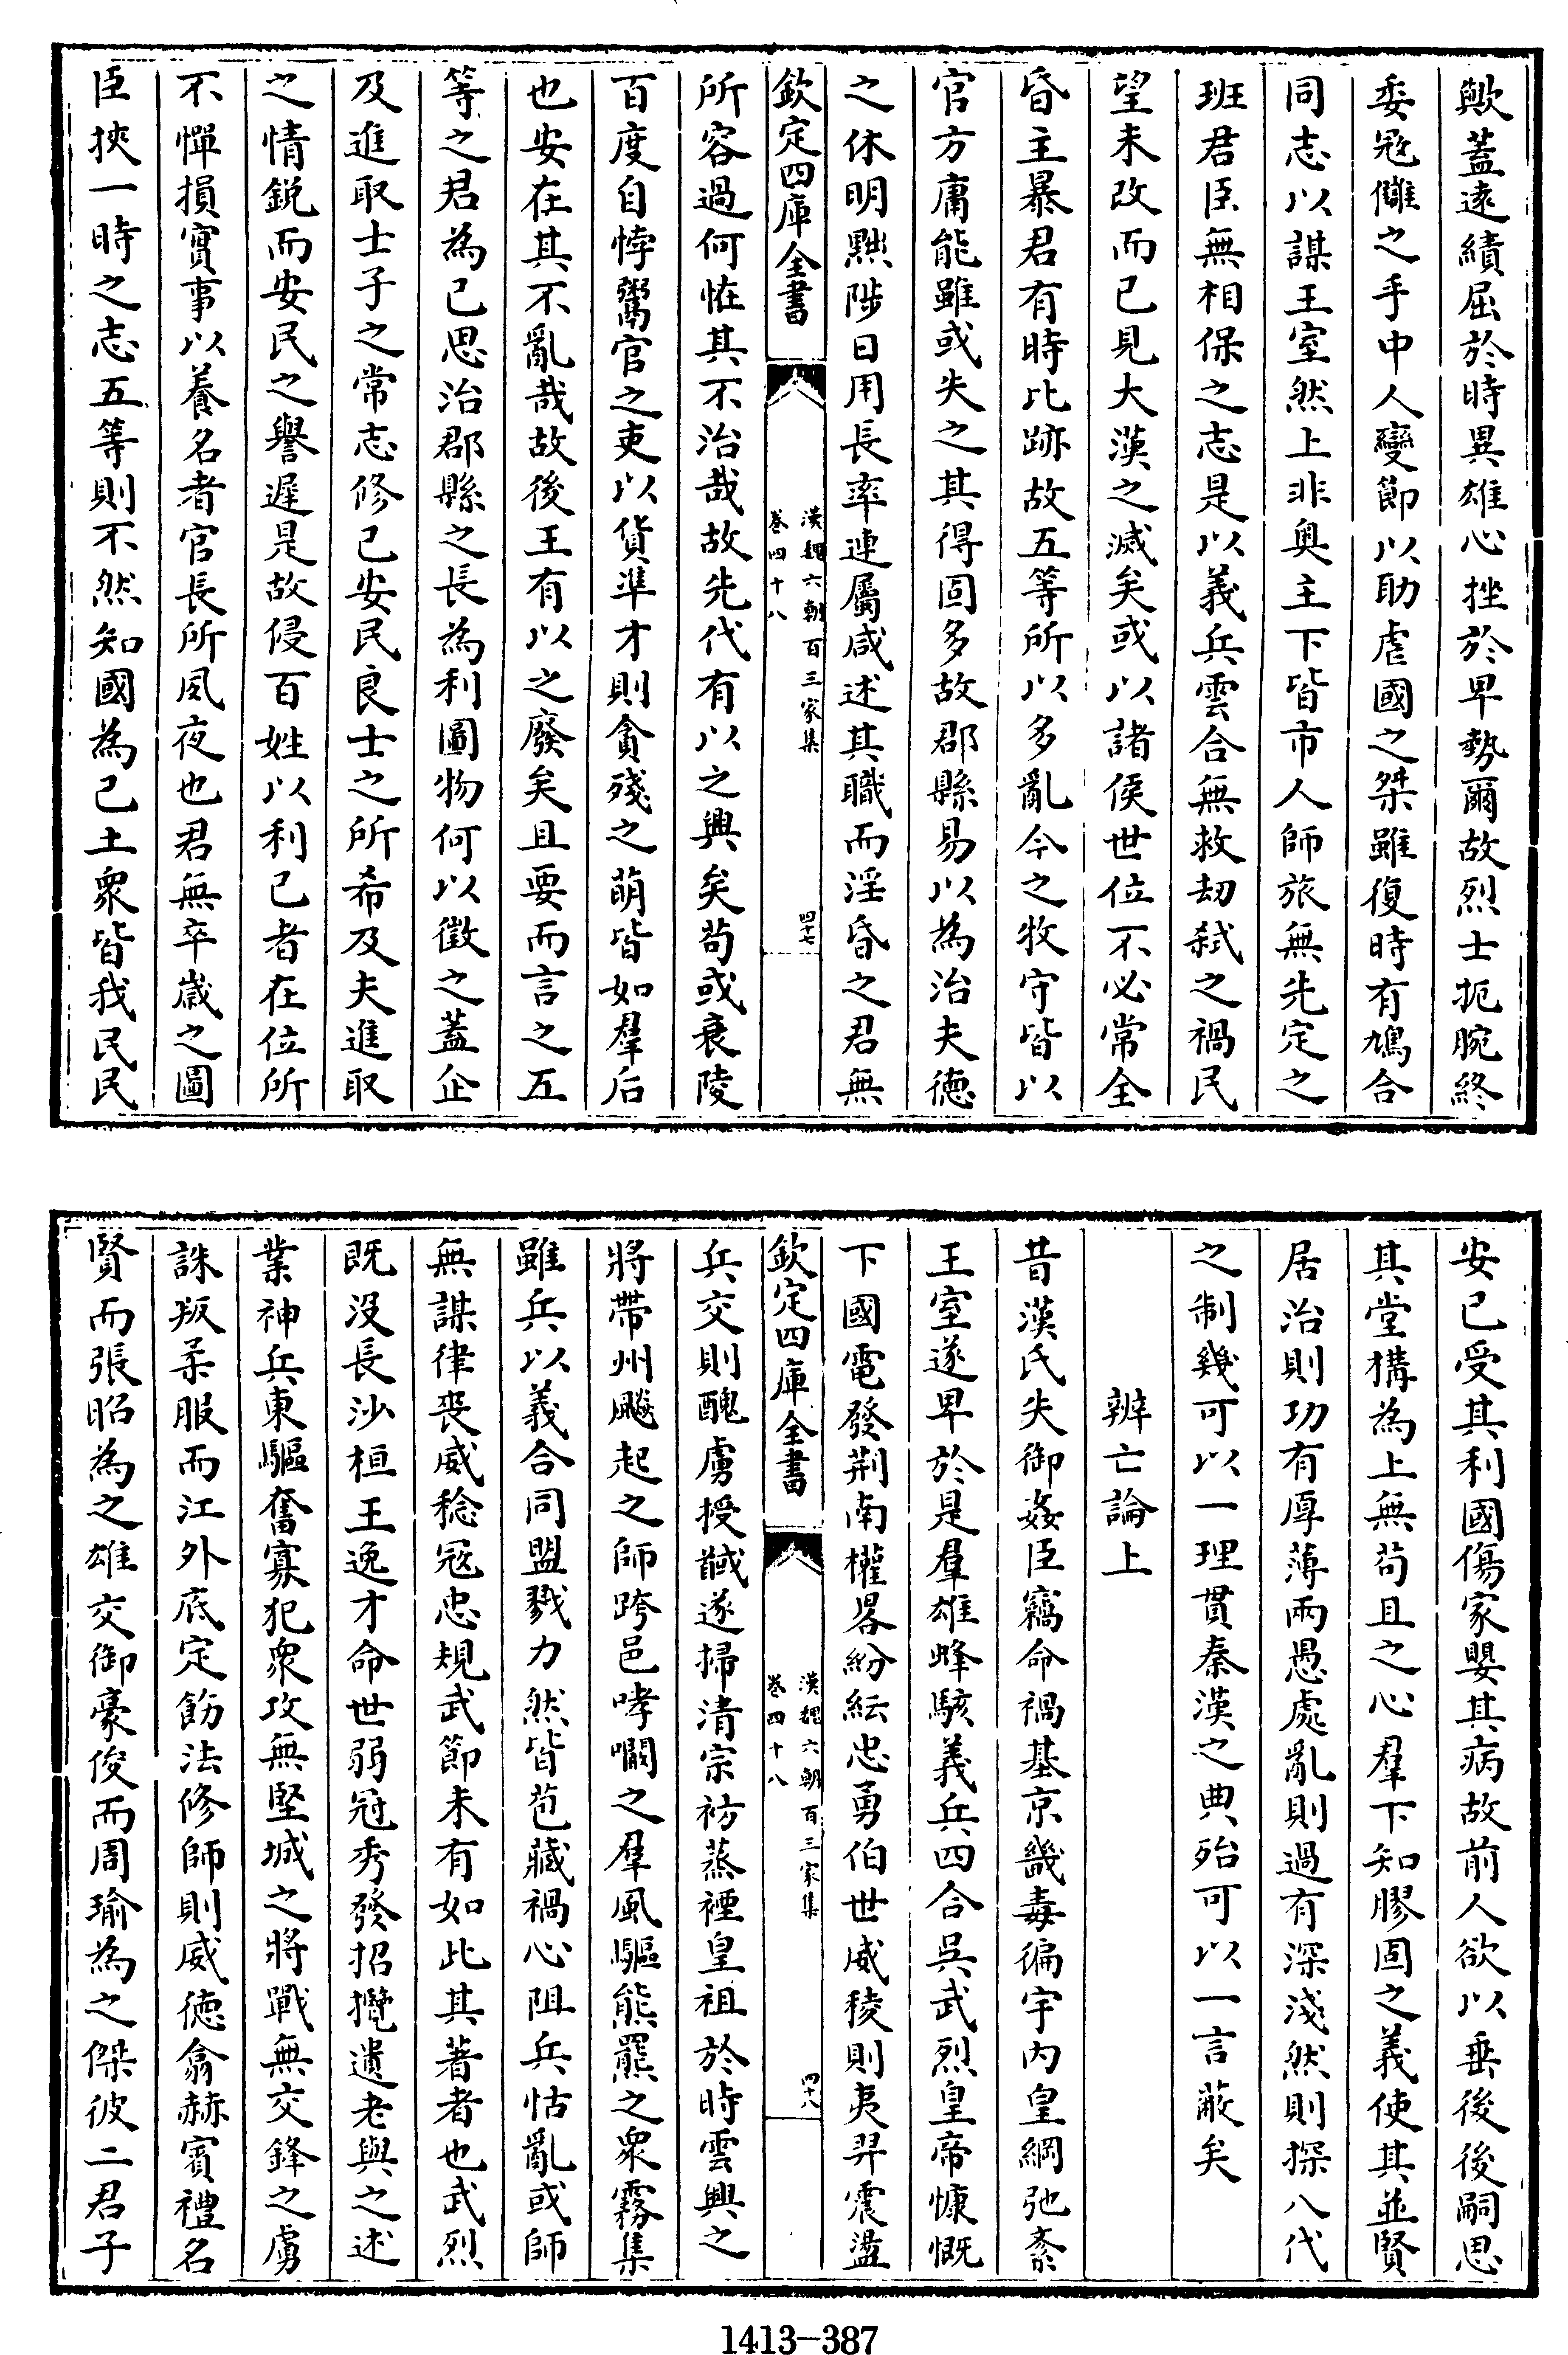 歟蓋遠績屈於時異雄心挫於卑勢爾故烈士扼腕終
委冦讎之手中人變節以助虐國之桀雖復時有鳩合
同志以謀王室然上非奥主下皆市人師旅無先定之
班君臣無相保之志是以義兵雲合無救劫弑之禍民
望未改而已見大漢之滅矣或以諸侯世位不必常全
昏主暴君有時比跡故五等所以多亂今之牧守皆以
官方庸能雖或失之其得固多故郡縣易以為治夫德
之休明黜陟日用長率連屬咸述其職而淫昏之君無
欽定四庫全書
漢魏六朝百三家集
卷四十八
四十七
所容過何恠其不治哉故先代有以之興矣苟或衰陵
百度自悖鬻官之吏以貨準才則貪殘之萌皆如羣后
也安在其不亂哉故後王有以之廢矣且要而言之五
等之君為己思治郡縣之長為利圖物何以徵之蓋企
及進取士子之常志修己安民良士之所希及夫進取
之情鋭而安民之譽遲是故侵百姓以利己者在位所
不憚損實事以養名者官長所夙夜也君無卒歲之圖
臣挾一時之志五等則不然知國為己土衆皆我民民
安已受其利國傷家嬰其病故前人欲以垂後後嗣思
其堂構為上無苟且之心羣下知膠固之義使其並賢
居治則功有厚薄兩愚處亂則過有深淺然則探八代
之制幾可以一理貫秦漢之典殆可以一言蔽矣
辨亡論上
昔漢氏失御姦臣竊命禍基京畿毒徧宇内皇綱弛紊
王室遂卑於是羣雄蜂駭義兵四合吳武烈皇帝慷慨
下國電發荆南權畧紛紜忠勇伯世威稜則夷羿震盪
欽定四庫全書
漢魏六朝百三家集
卷四十八
四十八
兵交則醜虜授馘遂掃清宗祊蒸禋皇祖於時雲興之
將帶州飈起之師跨邑哮㘚之羣風驅熊羆之衆霧集
雖兵以義合同盟戮力然皆苞藏禍心阻兵怙亂或師
無謀律喪威稔冦忠規武節未有如此其著者也武烈
既沒長沙桓王逸才命世弱冠秀發招攬遺老與之述
業神兵東驅奮寡犯衆攻無堅城之將戰無交鋒之虜
誅叛柔服而江外底定飭法修師則威德翕赫賓禮名
賢而張昭為之雄交御豪俊而周瑜為之傑彼二君子
1413—387